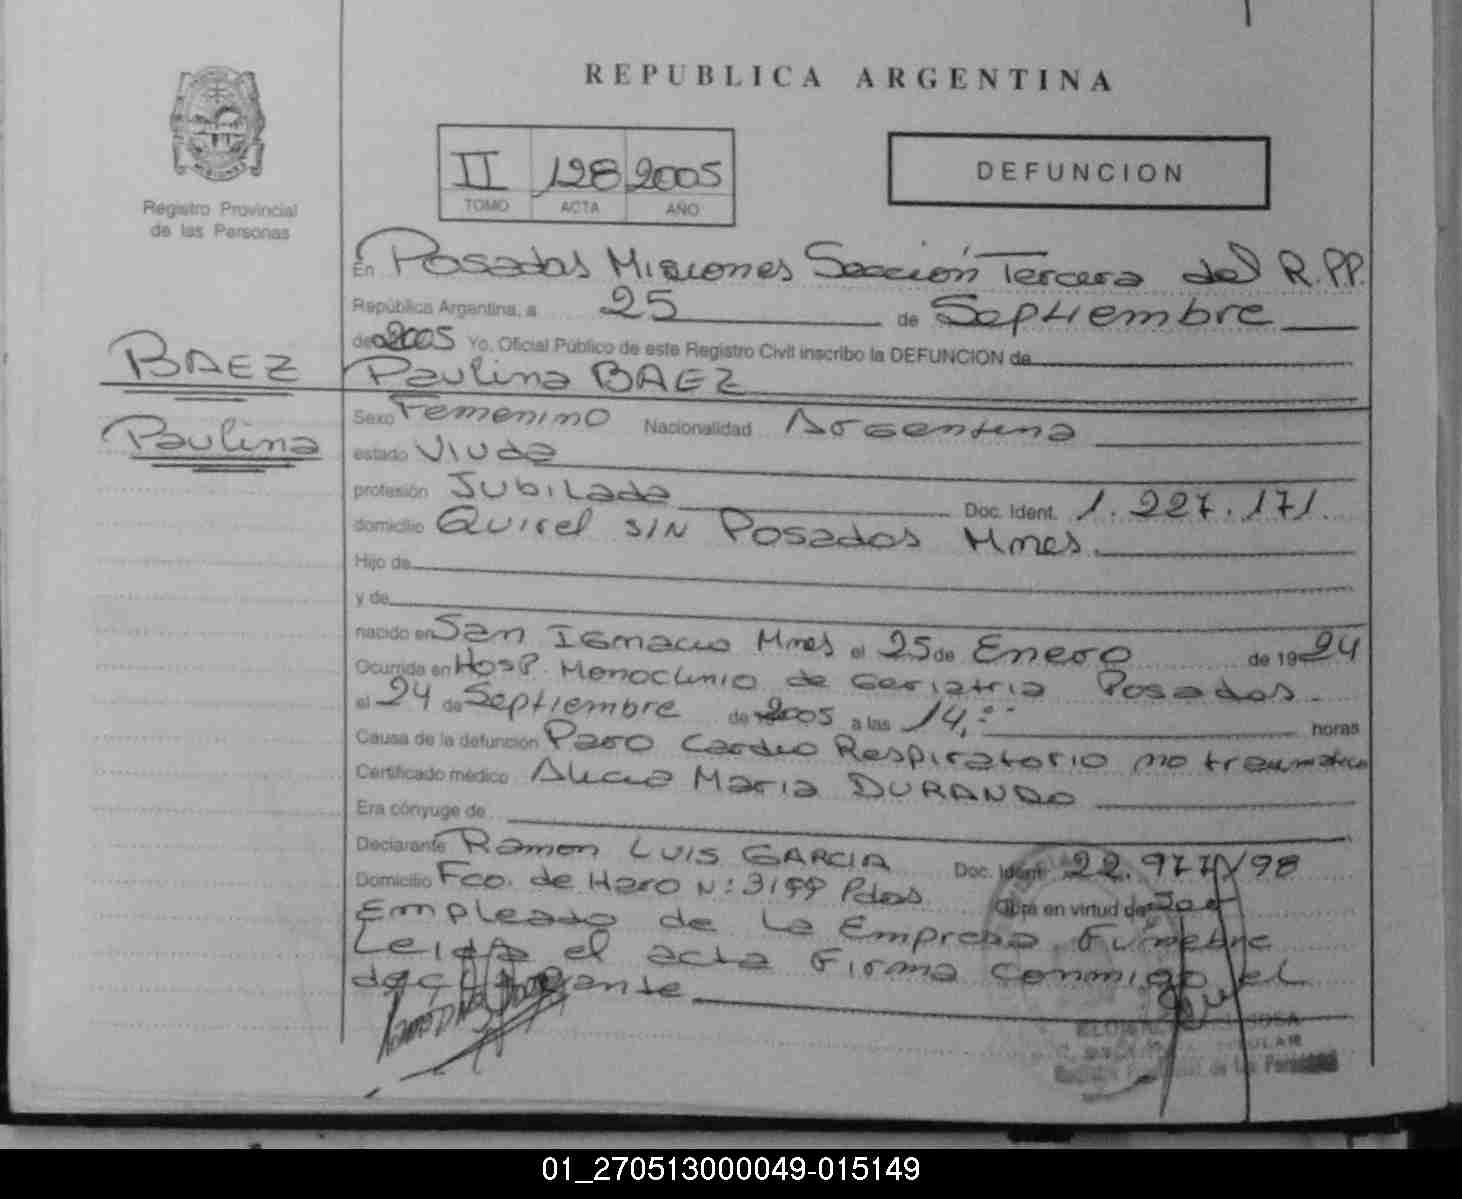 REPUBLICA ARGENTINA
Registro Provincial
de las Personas
II 128 2005
TOMO ACTA AÑO
DEFUNCION
En Posadas Misiones Sección Tercera del R.PP.
República Argentina, a 25 de Septiembre
de 2005 Yo, Oficial Público de este Registro Civil inscribo la DEFUNCION de
BAEZ
Paulina
Paulina BAEZ
Sexo Femenino Nacionalidad Argentina
estado Viuda
profesión Jubilada Doc. Ident. 1.227.171.
domicilio Quirel S/N Posadas Mnes.
Hijo de
y de
nacido en San Ignacio Mnes el 25 de Enero de 1924
Ocurrida en Hosp. Monoclinio de Geriatria Posadas.
el 24 de Septiembre de 2005 a las 14,: horas
Causa de la defunción Paro Cardio Respiratorio no traumatico
Certificado médico Alicia Maria DURANDO
Era cónyuge de
Declarante Ramon LUIS GARCIA Doc. Ident. 22.977.198
Domicilio Fco. de Haro N: 3199 Pdas Obra en virtud de Ser
Empleado de la Empresa Funebre
Leida el acta Firma conmigo el
declarante
de las Personas
01_270513000049-015149